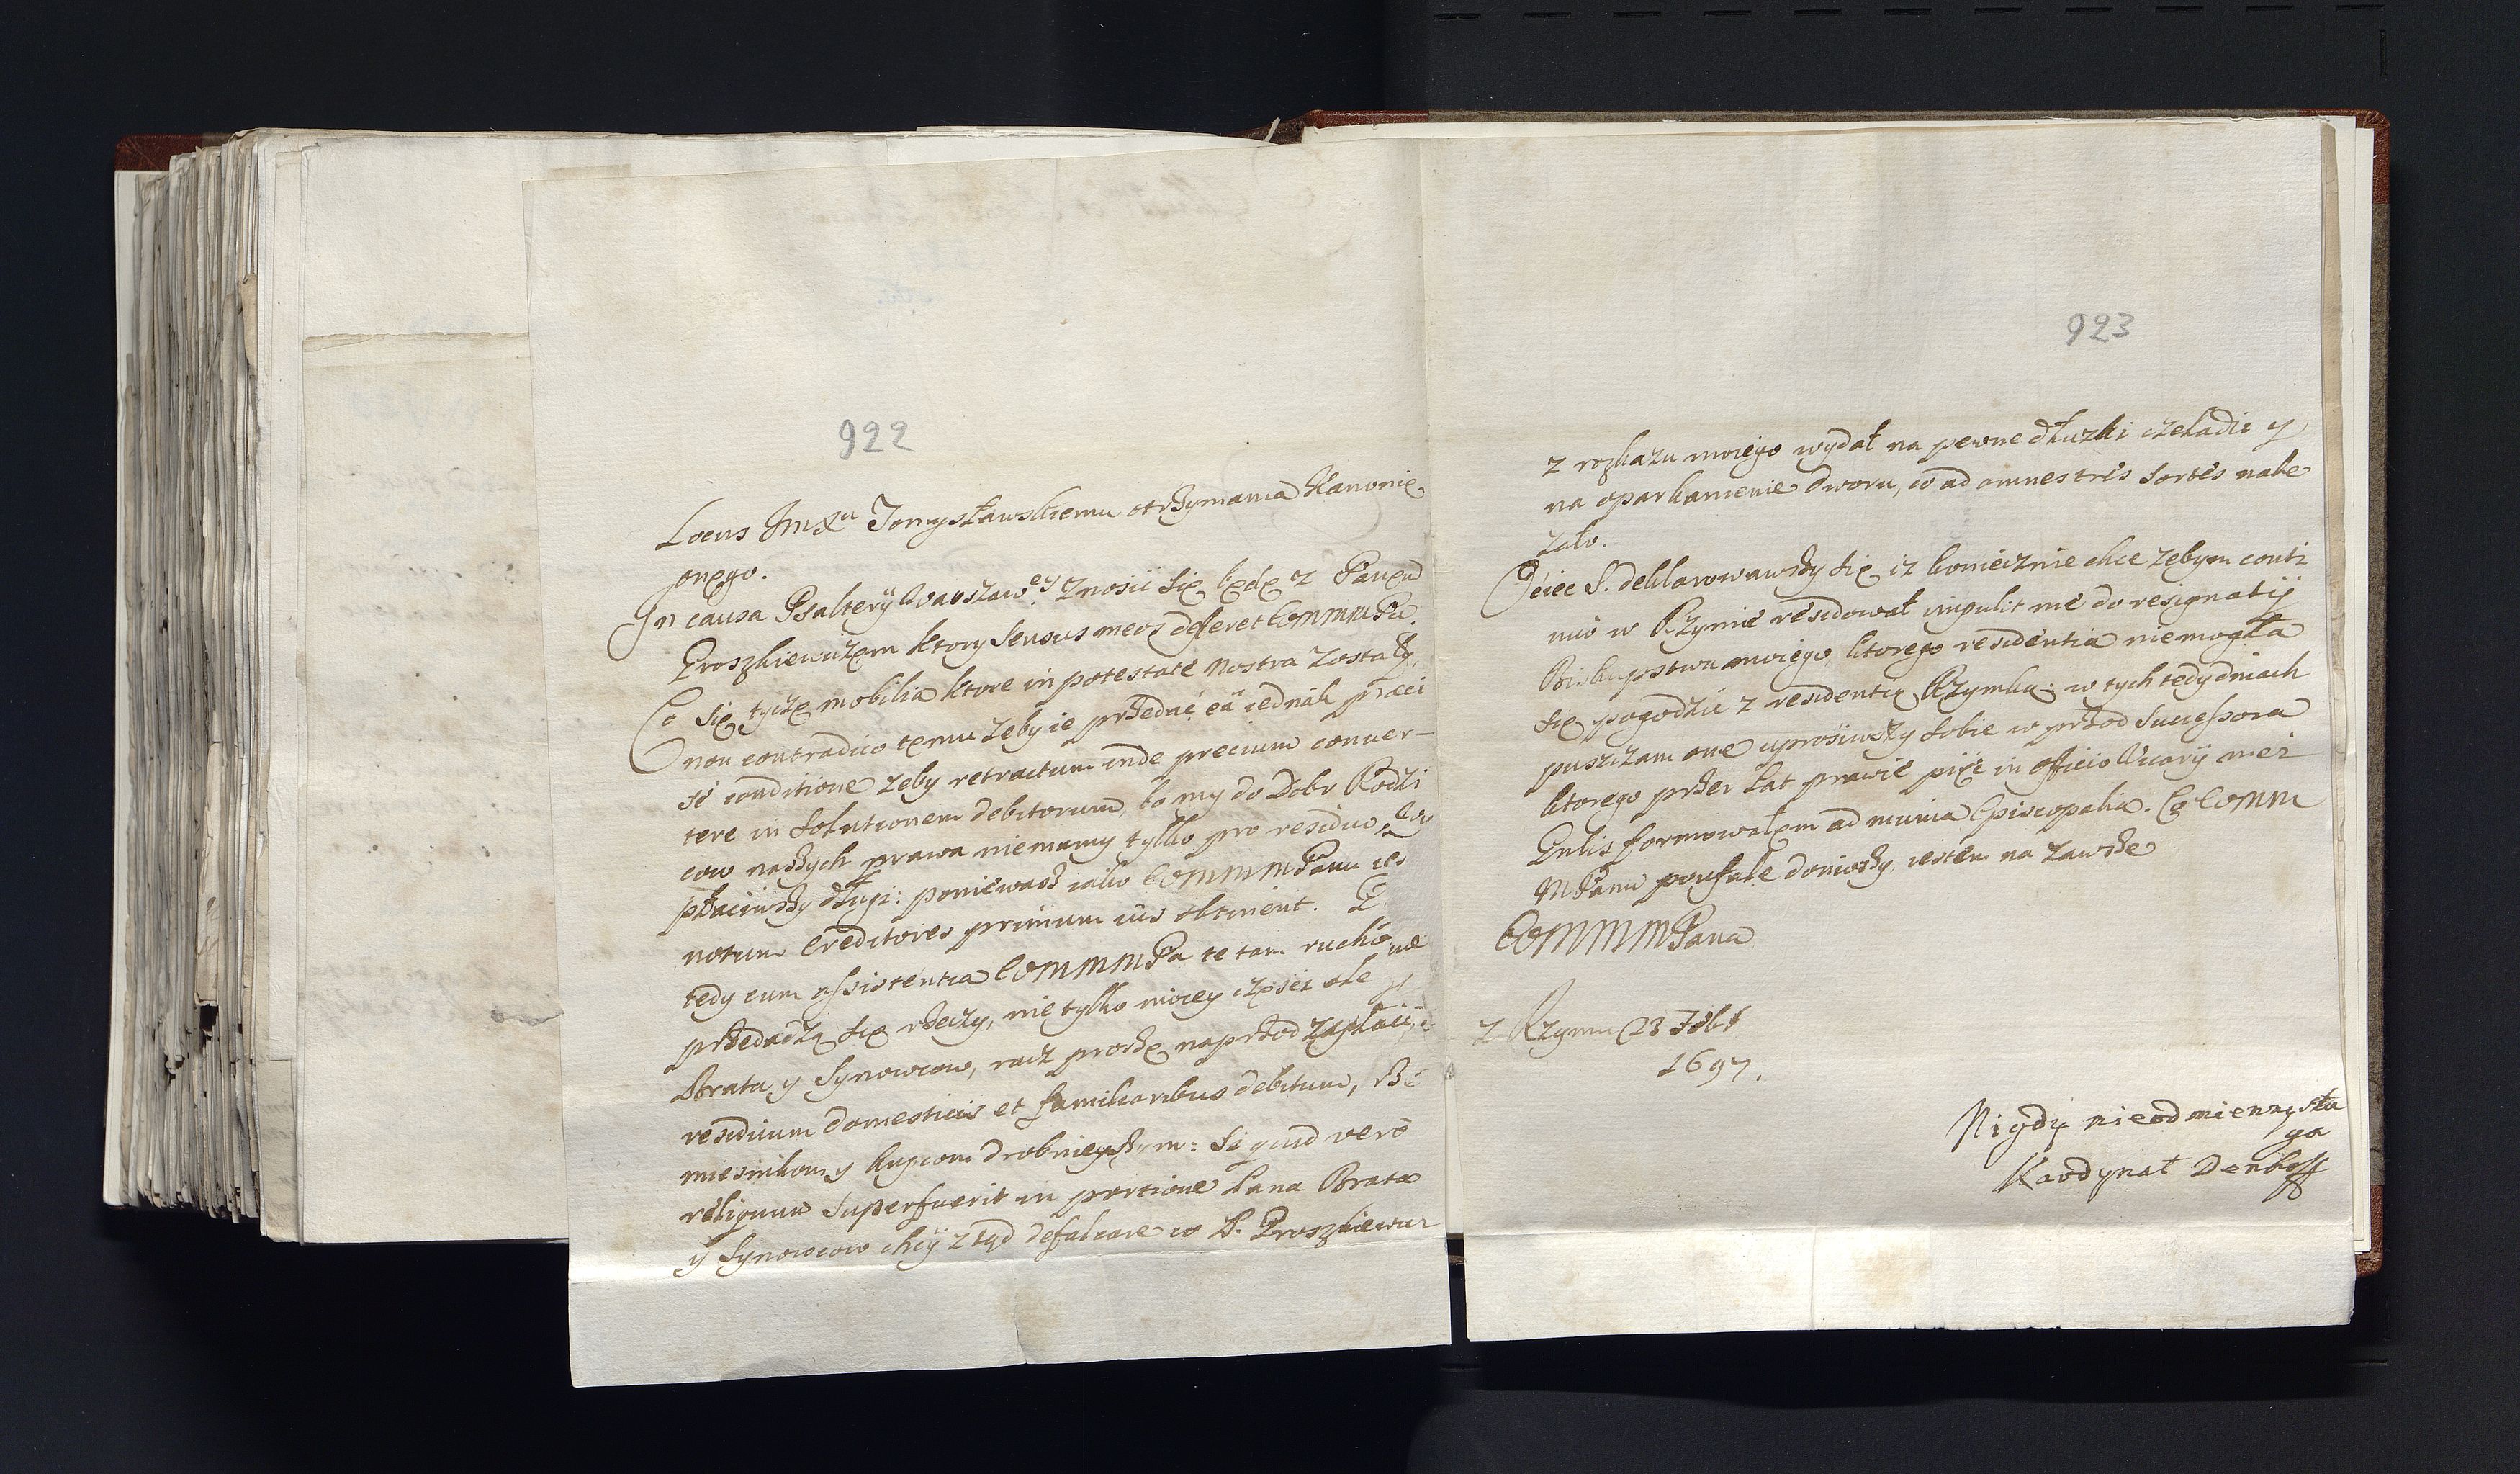 922
Locus Jmxu Tomysławskiemu otrzymania Kanonię
onego.
In causa Psalterij Warszaw:ey Znosić się będę z Panem
Proszkiewiczem ktory sensus meos deferet WMMMPu.
Co się tycze mobilia ktore in potestate nostra Zostały,
non contradico temu zeby ie przedać eâ iednak præci
sè conditione zeby retractum inde precium conver-
tere in solutionem debitorum, bo my do Dobr Rodzi
cow naszych prawa niemamy tylko pro residuo
płaciwszy długi: poniewasz iako WMMMPanu ies
notum Creditores primum ius obtinent.
tedy cum assistentia WMMMPa te tam ruchome
przedadzą się rzeczy, nie tylko moiey części ale y
Brata y Synowcow, racz proszę naprzod zapłacić
residuum domesticis et familiaribus debitum,
miesnikom y kupcom drobnieyszym: Si quid verò
reliquum superfuerit in portione Pana Brata
y Synowcow chcij ztąd defalcare co P. Proszkiewicz
923
z roskazu moiego wydał na pewne dłuzki czeladzi y
na oparkanienie dworu, co ad omnes tres sortes nale
zało.
Ociec S. deklarowawszy się iz koniecznie chce zebym conti
nuò w Rzymie residował impulit me do resignatij
Biskupstwa moiego, ktorego residentia niemogła
się pogodzić z residentią Rzymką: w tych tedy dniach
puszczam one uprosiwszy sobie w przod Successora
ktorego przez lat prawie pięć in officio Vicarij mei
Gnlis formowałem ad munia Episcopalia. Co WMM
MPanu poufale doniosszy, iestem na zawsze
WMMMMPana
z Rzymu 23 7bˢ
1697.
Nigdy nieodmienny słu
ga
Kardynał Denhoff